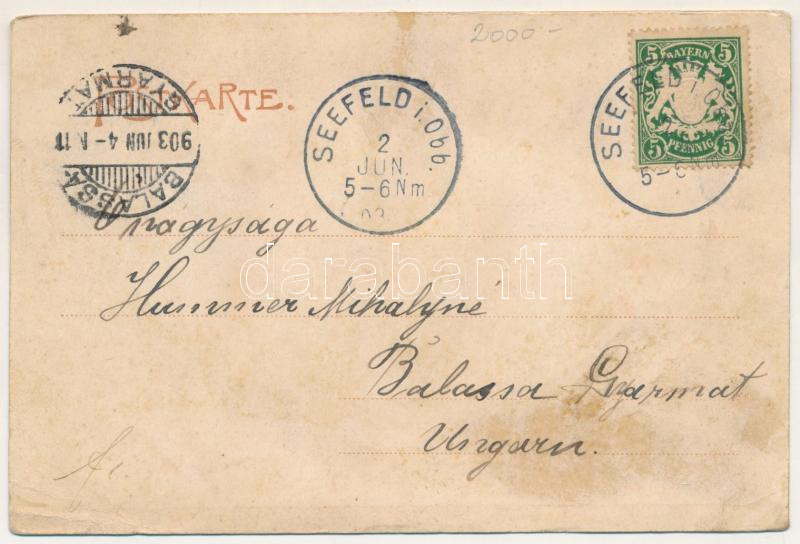 2000-
KARTE.
BALASSA
GYARMAT
903 JUN 4
SEEFELD i. Obb.
2
JUN.
5-6 Nm
03
SEEFELD i. O
5-6 N
5 BAYERN 5
5 PFENNIG 5
Ő nagysága
Hummer Mihályné
Balassa Gyarmat
Ungarn.
darabanth